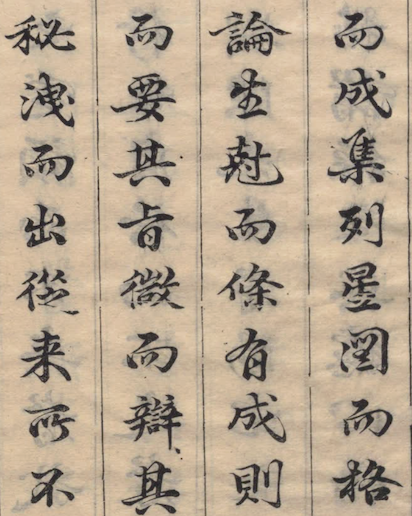 而成集列星圖而格
論生尅而條有成則
而要其旨微而辯其
秘洩而出從来所不